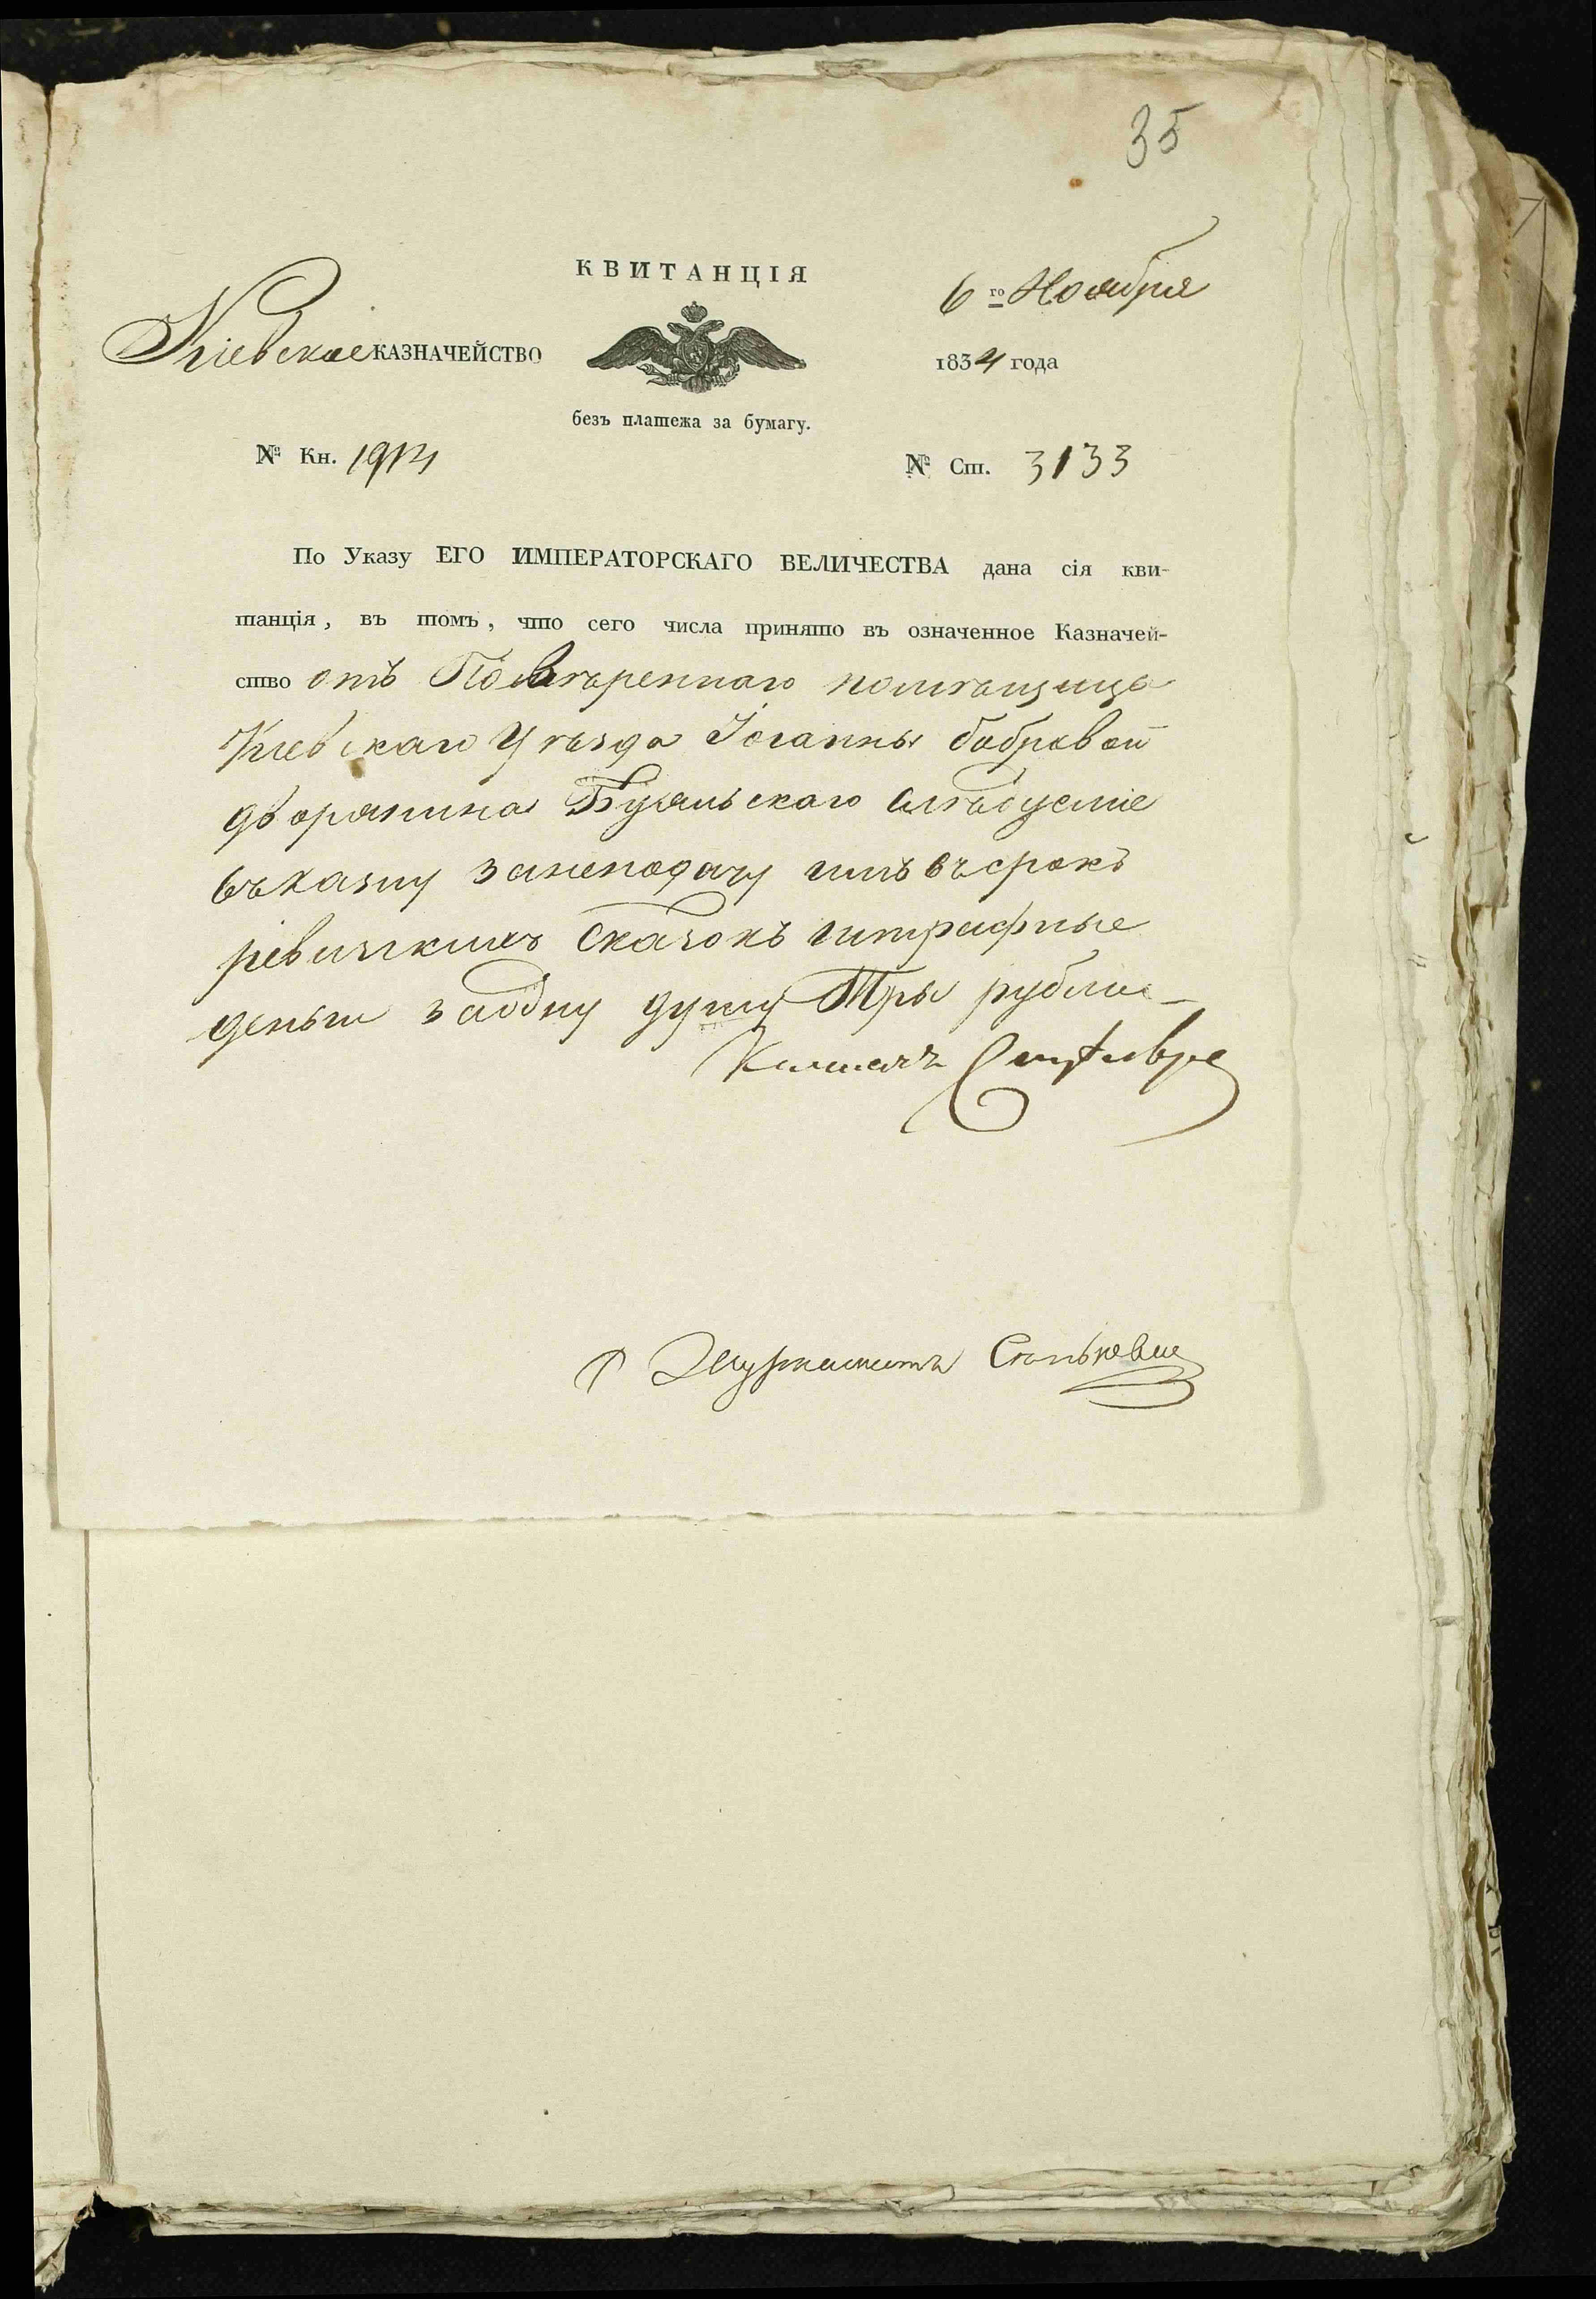 35
КВИТАНЦІЯ
6го Ноября
Кіевское КАЗНАЧЕЙСТВО
1834 года
безъ платежа за бумагу.
№ Кн.
№ Ст. 3133
По Указу ЕГО ИМПЕРАТОРСКАГО ВЕЛИЧЕСТВА дана сія кви-
танція, въ томъ, что сего числа принято въ означенное Казначей-
ство отъ Повѣреннаго помѣщицы
Кіевскаго Уѣзда Іоанны Бобровой
дворянина слѣдуемые
въ казну за неподачу имъ въ срокъ
ревизскихъ Сказокъ штрафные
деньги за одну душу Три рубли
Журналистъ Станкевичъ